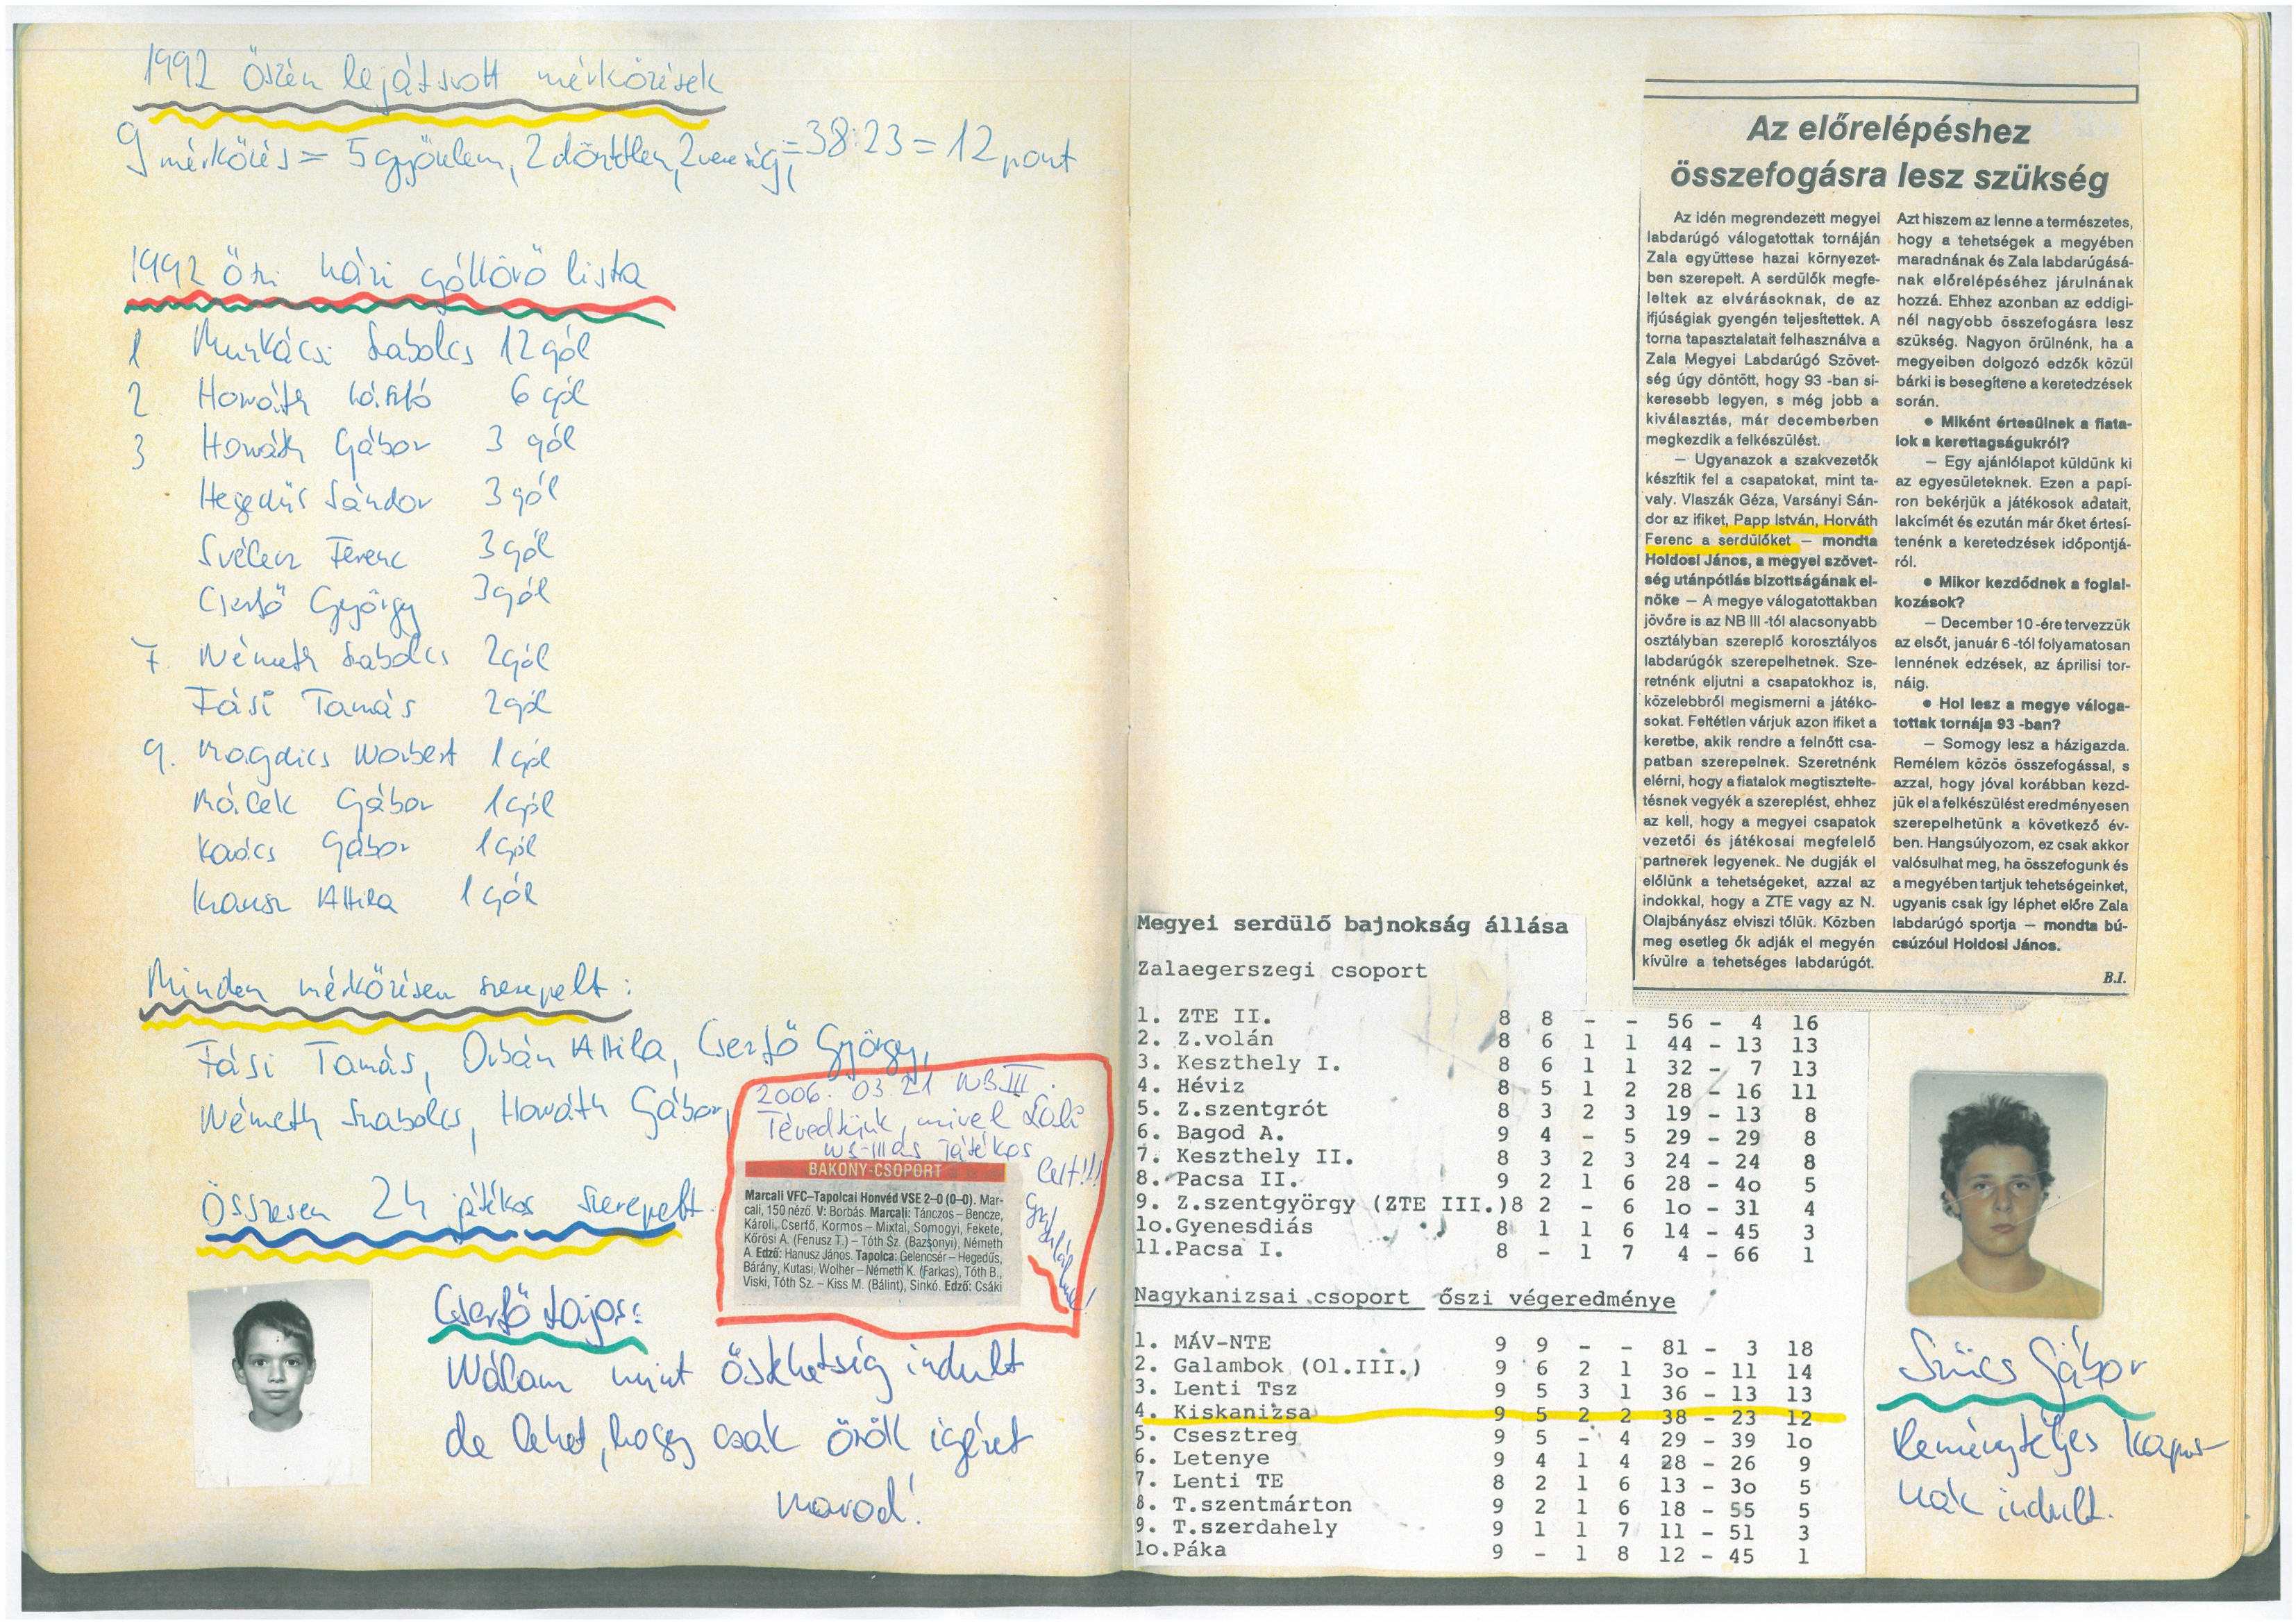 1992 őszén lejátszott mérkőzések
9 mérkőzés = 5 győzelem, 2 döntetlen, 2 vereség, = 38:23 = 12 pont
1992 őszi házi góllövő lista
1 Munkácsi Szabolcs 12 gól
2 Horváth László 6 gól
3 Horváth Gábor 3 gól
Hegedüs Sándor 3 gól
Ferenc 3 gól
Cserfő György 3 gól
7. Németh Szabolcs 2 gól
Fási Tamás 2 gól
9. Magdics Norbert 1 gól
Mácek Gábor 1 gól
Kovács Gábor 1 gól
Krausz Attila 1 gól
Minden mérkőzésen szerepelt:
Fási Tamás, Orbán Attila, Cserfő György,
Németh Szabolcs, Horváth Gábor,
Összesen 24 játékos szerepelt.
2006. 03. 21 NB III.
Tévedtünk, mivel Lali
NB-III-as játékos
lett!!!
Gratulálunk!
BAKONY-CSOPORT
Marcali VFC–Tapolcai Honvéd VSE 2–0 (0–0). Mar-
cali, 150 néző. V: Borbás. Marcali: Tánczos – Bencze,
Károli, Cserfő, Kormos – Mixtal, Somogyi, Fekete,
Kőrösi A. (Fenusz T.) – Tóth Sz. (Bazsonyi), Németh
A. Edző: Hanusz János. Tapolca: Gelencsér – Hegedűs,
Bárány, Kutasi, Wolher – Németh K. (Farkas), Tóth B.,
Viski, Tóth Sz. – Kiss M. (Bálint), Sinkó. Edző: Csáki
Cserfő Lajos:
Nálam mint őstehetség indult
de lehet, hogy csak örök igéret
marad!
Az előrelépéshez
összefogásra lesz szükség
Az idén megrendezett megyei
labdarúgó válogatottak tornáján
Zala együttese hazai környezet-
ben szerepelt. A serdülők megfe-
leltek az elvárásoknak, de az
ifjúságiak gyengén teljesítettek. A
torna tapasztalatait felhasználva a
Zala Megyei Labdarúgó Szövet-
ség úgy döntött, hogy 93 -ban si-
keresebb legyen, s még jobb a
kiválasztás, már decemberben
megkezdik a felkészülést.
— Ugyanazok a szakvezetők
készítik fel a csapatokat, mint ta-
valy. Vlaszák Géza, Varsányi Sán-
dor az ifiket, Papp István, Horváth
Ferenc a serdülőket — mondta
Holdosi János, a megyei szövet-
ség utánpótlás bizottságának el-
nöke — A megye válogatottakban
jövőre is az NB III -tól alacsonyabb
osztályban szereplő korosztályos
labdarúgók szerepelhetnek. Sze-
retnénk eljutni a csapatokhoz is,
közelebbről megismerni a játéko-
sokat. Feltétlen várjuk azon ifiket a
keretbe, akik rendre a felnőtt csa-
patban szerepelnek. Szeretnénk
elérni, hogy a fiatalok megtisztelte-
tésnek vegyék a szereplést, ehhez
az kell, hogy a megyei csapatok
vezetői és játékosai megfelelő
partnerek legyenek. Ne dugják el
előlünk a tehetségeket, azzal az
indokkal, hogy a ZTE vagy az N.
Olajbányász elviszi tőlük. Közben
meg esetleg ők adják el megyén
kívülre a tehetséges labdarúgót.
Azt hiszem az lenne a természetes,
hogy a tehetségek a megyében
maradnának és Zala labdarúgásá-
nak előrelépéséhez járulnának
hozzá. Ehhez azonban az eddigi-
nél nagyobb összefogásra lesz
szükség. Nagyon örülnénk, ha a
megyeiben dolgozó edzők közül
bárki is besegítene a keretedzések
során.
● Miként értesülnek a fiata-
lok a kerettagságukról?
— Egy ajánlólapot küldünk ki
az egyesületeknek. Ezen a papí-
ron bekérjük a játékosok adatait,
lakcímét és ezután már őket értesí-
tenénk a keretedzések időpontjá-
ról.
● Mikor kezdődnek a foglal-
kozások?
— December 10 -ére tervezzük
az elsőt, január 6 -tól folyamatosan
lennének edzések, az áprilisi tor-
náig.
● Hol lesz a megye váloga-
tottak tornája 93 -ban?
— Somogy lesz a házigazda.
Remélem közös összefogással, s
azzal, hogy jóval korábban kezd-
jük el a felkészülést eredményesen
szerepelhetünk a következő év-
ben. Hangsúlyozom, ez csak akkor
valósulhat meg, ha összefogunk és
a megyében tartjuk tehetségeinket,
ugyanis csak így léphet előre Zala
labdarúgó sportja — mondta bú-
csúzóul Holdosi János.
B.I.
Megyei serdülő bajnokság állása
Zalaegerszegi csoport
1. ZTE II. 8 8 - - 56 - 4 16
2. Z.volán 8 6 1 1 44 - 13 13
3. Keszthely I. 8 6 1 1 32 - 7 13
4. Héviz 8 5 1 2 28 - 16 11
5. Z.szentgrót 8 3 2 3 19 - 13 8
6. Bagod A. 9 4 - 5 29 - 29 8
7. Keszthely II. 8 3 2 3 24 - 24 8
8. Pacsa II. 9 2 1 6 28 - 4o 5
9. Z.szentgyörgy (ZTE III.)8 2 - 6 1o - 31 4
1o.Gyenesdiás 8 1 1 6 14 - 45 3
11.Pacsa I. 8 - 1 7 4 - 66 1
Nagykanizsai csoport őszi végeredménye
1. MÁV-NTE 9 9 - - 81 - 3 18
2. Galambok (Ol.III.) 9 6 2 1 3o - 11 14
3. Lenti Tsz 9 5 3 1 36 - 13 13
4. Kiskanizsa 9 5 2 2 38 - 23 12
5. Csesztreg 9 5 - 4 29 - 39 1o
6. Letenye 9 4 1 4 28 - 26 9
7. Lenti TE 8 2 1 6 13 - 3o 5
8. T.szentmárton 9 2 1 6 18 - 55 5
9. T.szerdahely 9 1 1 7 11 - 51 3
1o.Páka 9 - 1 8 12 - 45 1
Szücs Gábor
Reményteljes kapus-
nak indult.